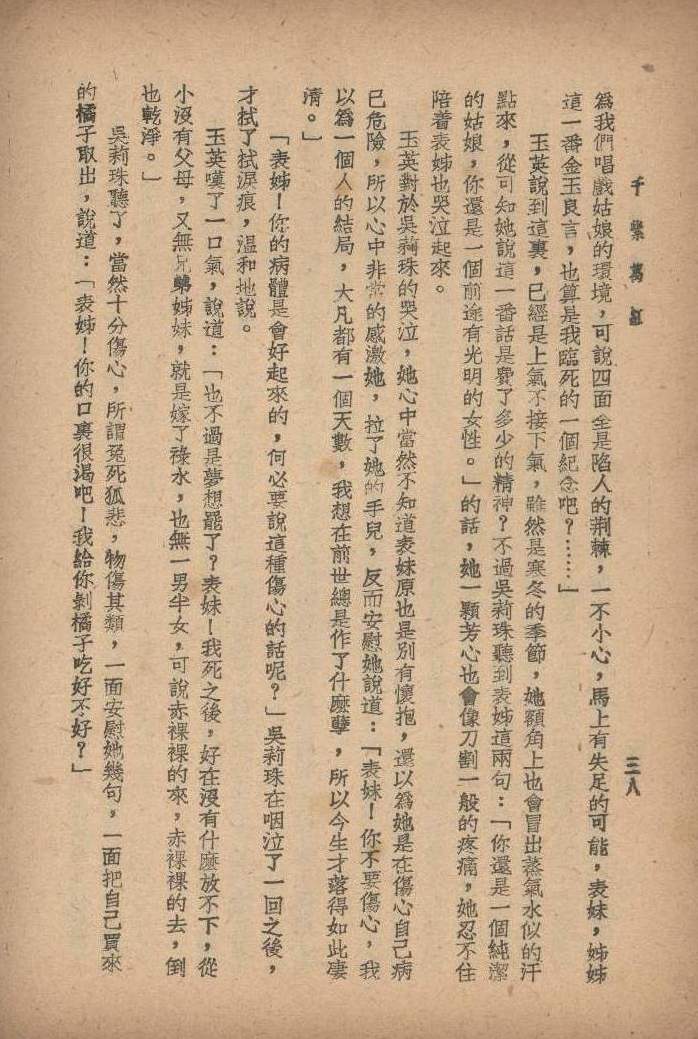 千紫萬紅
三八
為我們唱戲姑娘的環境，可說四面全是陷人的荆棘，一不小心，馬上有失足的可能，表妹，姊姊
這一番金玉良言，也算是我臨死的一個紀念吧？……」
玉英說到這裏，已經是上氣不接下氣，雖然是寒冬的季節，她額角上也會冒出蒸氣水似的汗
點來，從可知她說這一番話是費了多少的精神？不過吳莉珠聽到表姊這兩句：「你還是一個純潔
的姑娘，你還是一個前途有光明的女性。」的話，她一顆芳心也會像刀割一般的疼痛，她忍不住
陪着表姊也哭泣起來。
玉英對於吳莉珠的哭泣，她心中當然不知道表妹原也是別有懷抱，還以為她是在傷心自己病
已危險，所以心中非常的感激她，拉了她的手兒，反而安慰她說道：「表妹！你不要傷心，我
以為一個人的結局，大凡都有一個天數，我想在前世總是作了什麼孽，所以今生才落得如此凄
清。」
「表姊！你的病體是會好起來的，何必要說這種傷心的話呢？」吳莉珠在咽泣了一回之後，
才拭了拭淚痕，温和地說。
玉英嘆了一口氣，說道：「也不過是夢想罷了？表妹！我死之後，好在沒有什麼放不下，從
小沒有父母，又無兄弟姊妹，就是嫁了祿水，也無一男半女，可說赤裸裸的來，赤裸裸的去，倒
也乾淨。」
吳莉珠聽了，當然十分傷心，所謂兔死狐悲，物傷其類，一面安慰她幾句，一面把自己買來
的橘子取出，說道：「表姊！你的口裏很渴吧！我給你剝橘子吃好不好？」